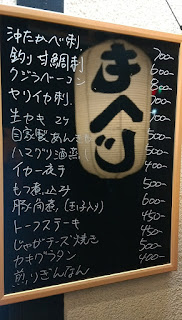 沖たかべ刺 700
釣り甘鯛刺 600-
クジラベーコン 800
ヤリイカ刺 700
生カキ 2ケ 700
自家製あんきも
ハマグリ酒蒸し 500-
イカ一夜干 400
もつ煮込み 500
豚角煮(玉子入り) 600-
トーフステーキ 450-
じゃがチーズ焼き 450-
カキグラタン 500-
煎りぎんなん 400-